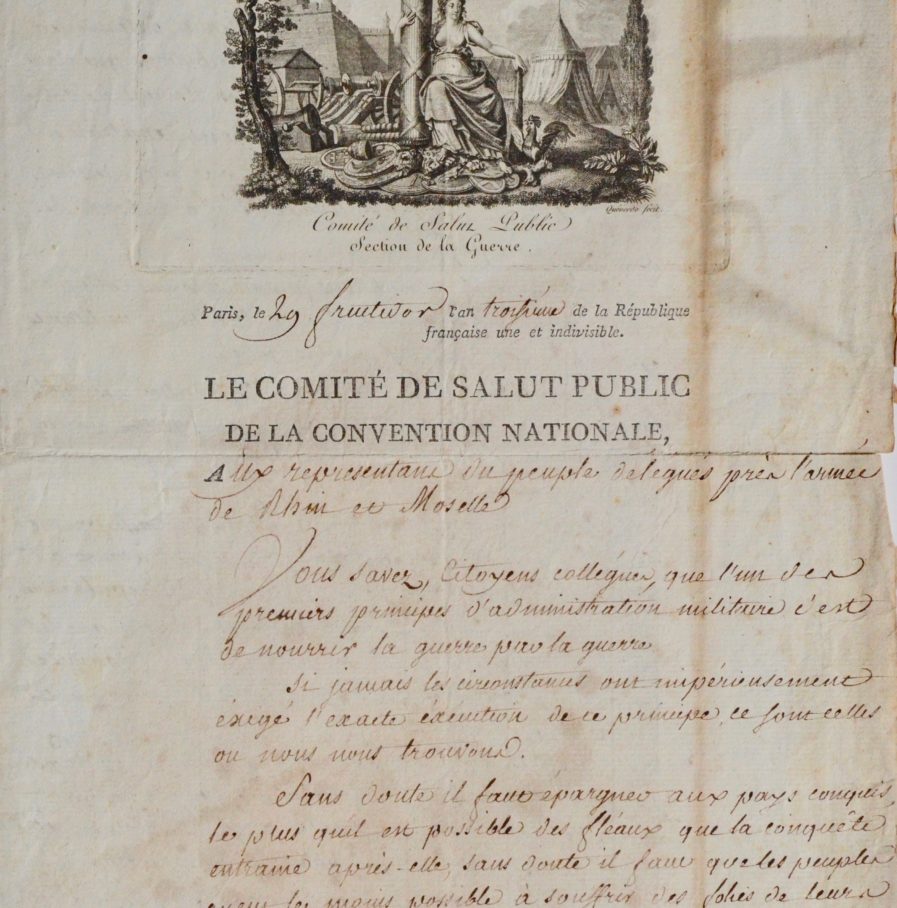 Queverdo fecit.
Comité de Salut Public
Section de la Guerre.
Paris, le 29 fructidor l'an troisième de la République
française une et indivisible.
LE COMITÉ DE SALUT PUBLIC
DE LA CONVENTION NATIONALE,
Aux representans du peuple delegués près l'armée
de Rhin et Moselle
Vous savez, Citoyens collégues, que l'un des
premiers principes d'administration militaire c'est
de nourrir la guerre par la guerre
Si jamais les circonstances ont impérieusement
éxigé l'exacte éxécution de ce principe, ce sont celles
ou nous nous trouvons.
Sans doute il faut épargner aux pays conquis,
le plus qu'il est possible des fléaux que la conquête
entraine après-elle, sans doute il faut que les peuples
ayent le moins possible à souffrir des folies de leurs